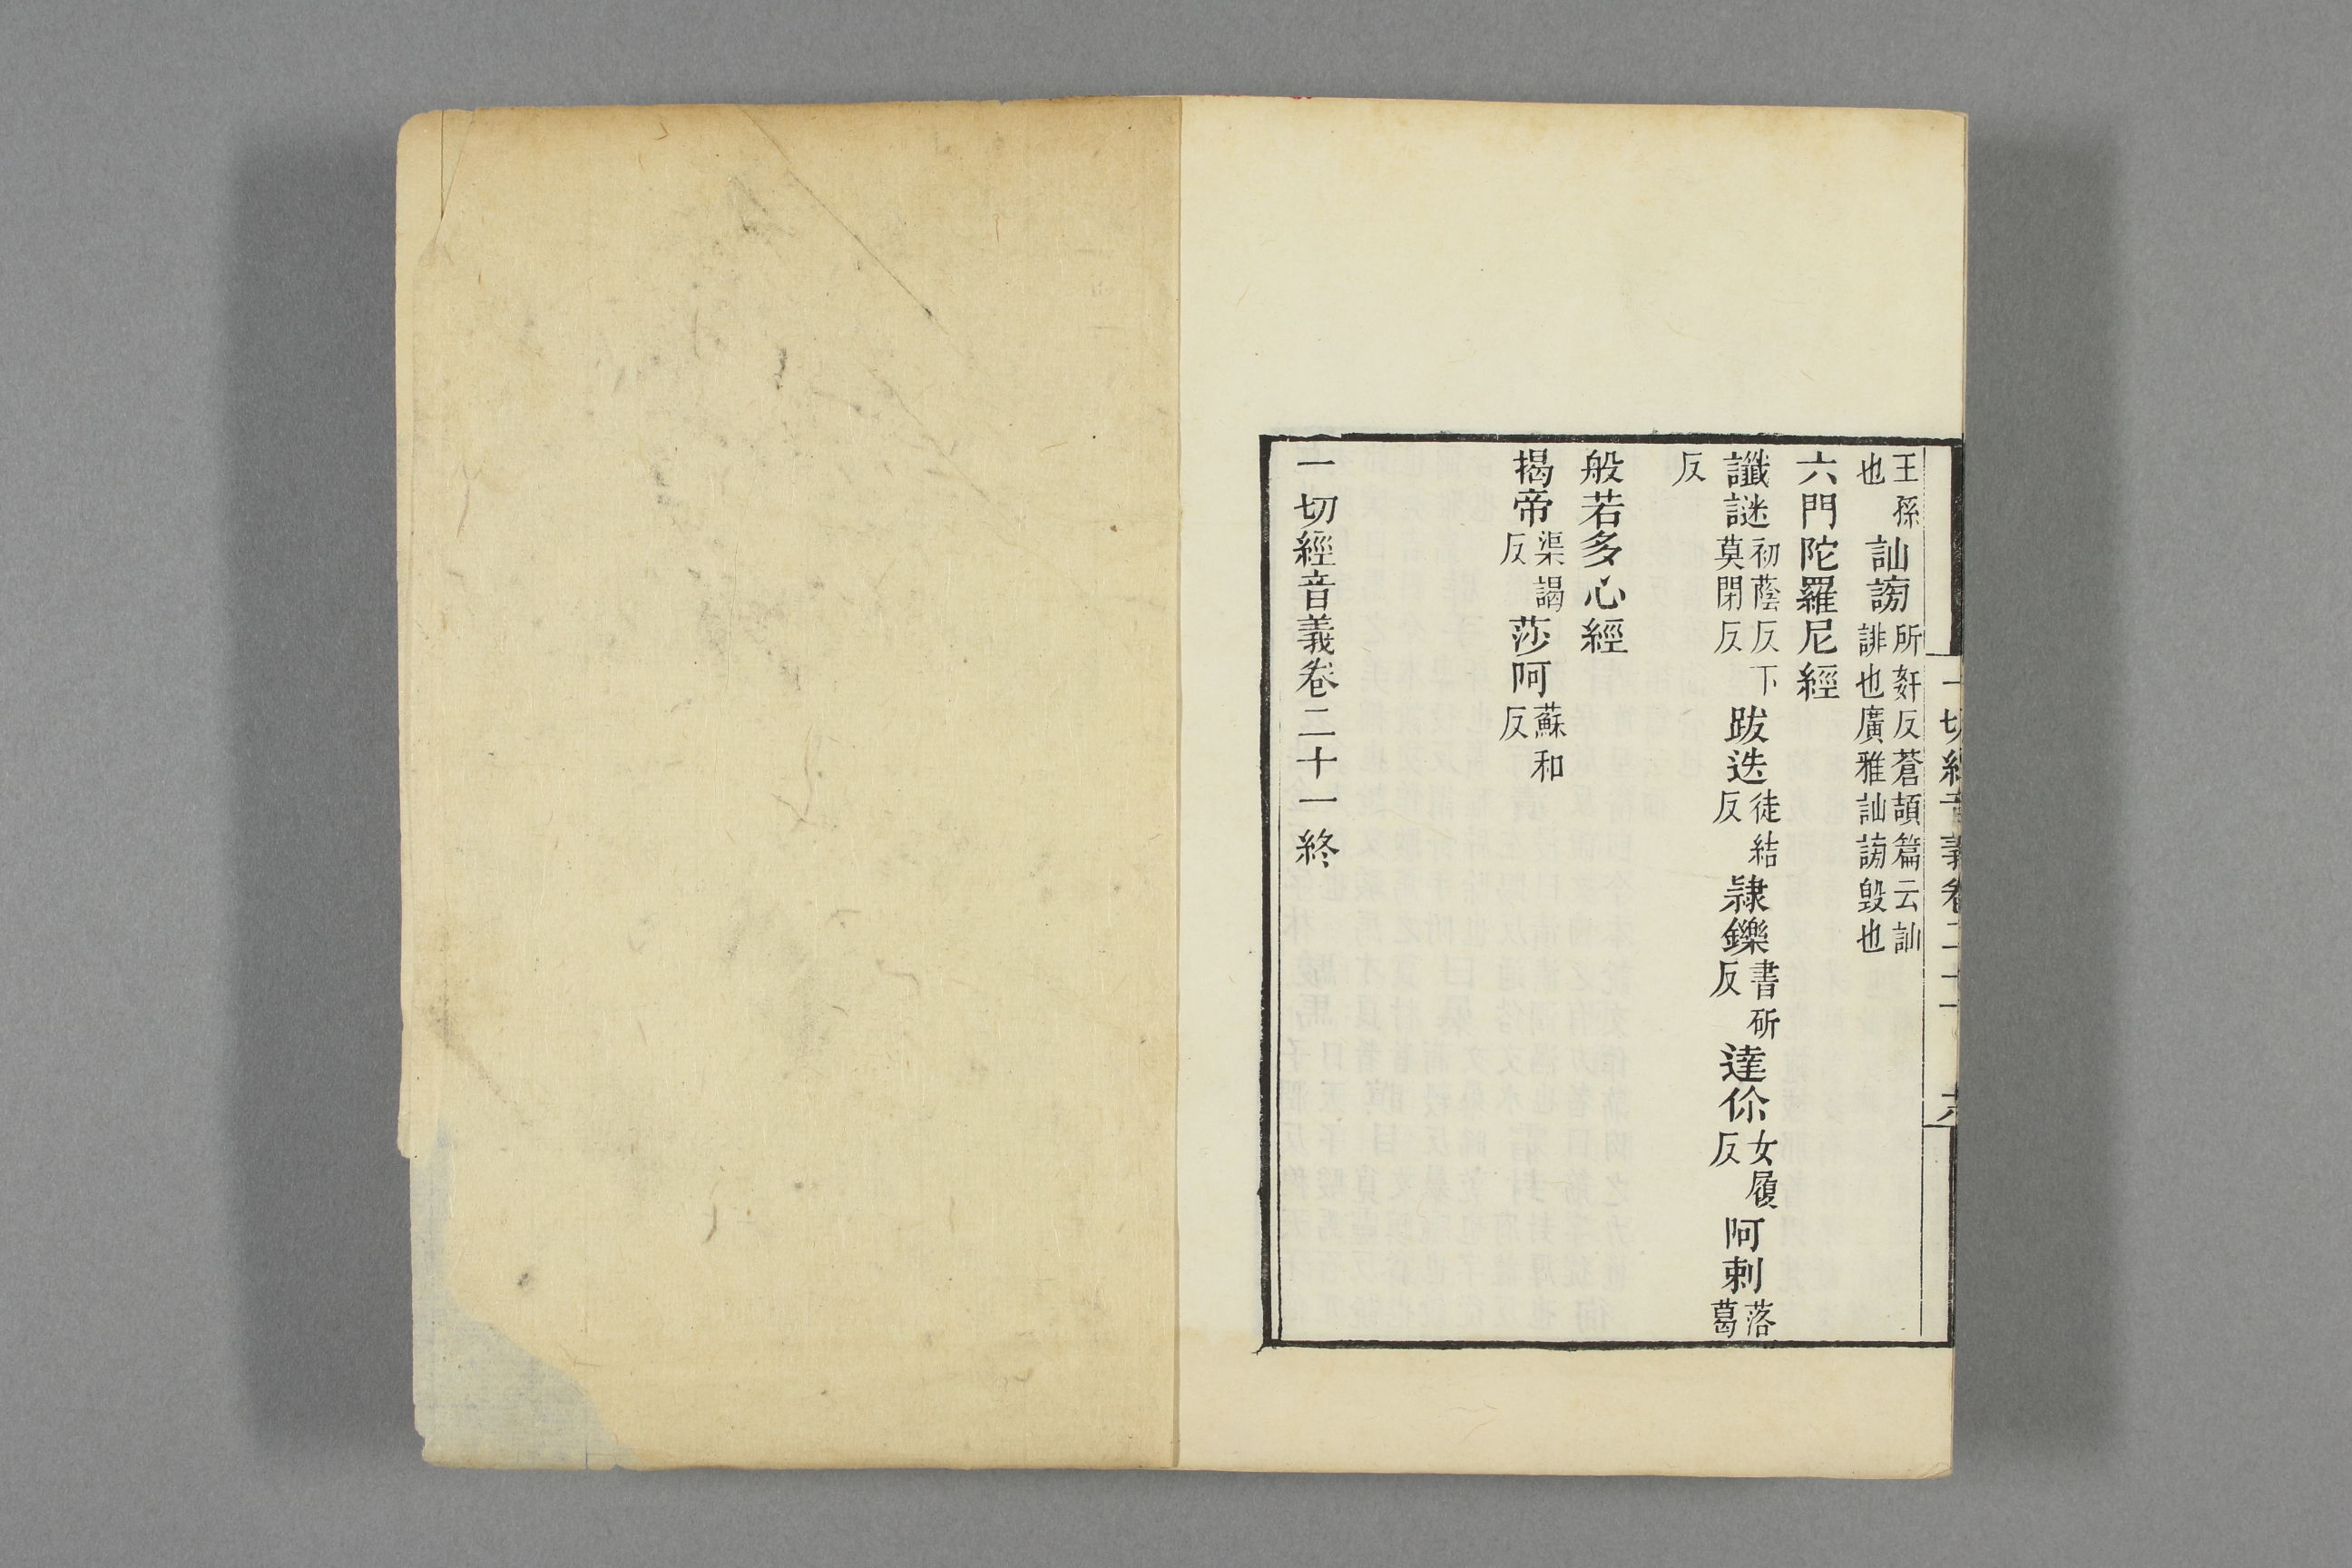 王孫也訕謗所姧反蒼頡篇云訕誹也廣雅訕謗毀也
六門陀羅尼經
讖謎初蔭反下莫閉反跋迭徒結反隷鑠書斫反達你女履反阿剌落葛
反
般若多心經
揭帝渠謁反莎阿蘇和反
一切經音義卷二十一終